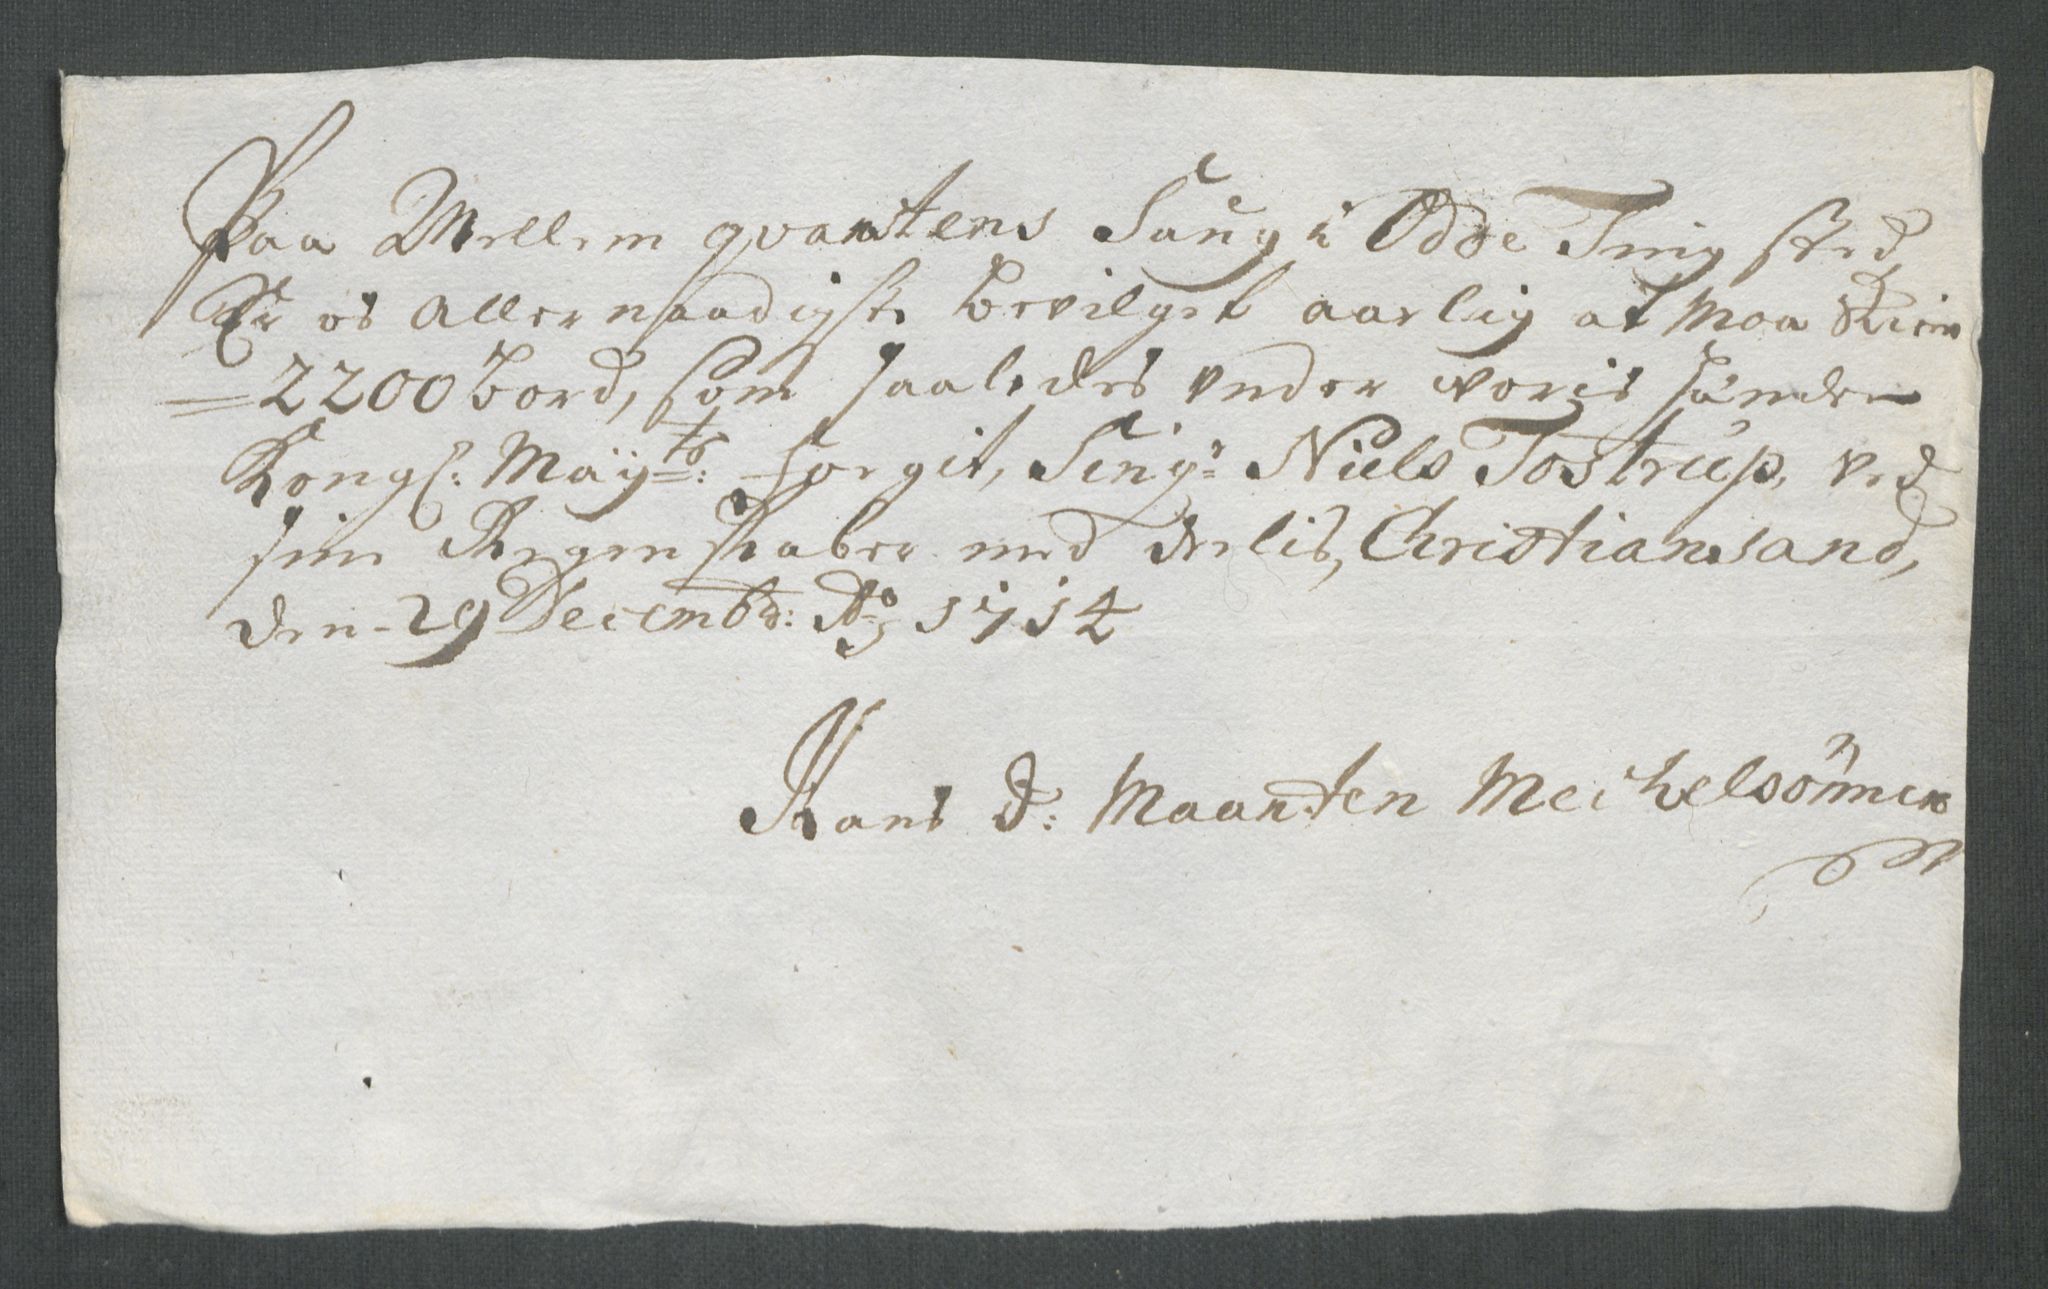 Paa Mellem qvartens Saug i Oddoe Ting sted
Er os Allernaadigste bevilget aarlig at Maa Skiere
= 2200 bord, som saaledes under voris hænder
Kongl: Maÿts: fogit, Seigr Niels Tostrup, ved
sine Regenskaber med derlis, Christiansand,
den 29 Decembr: Ao 1714
Hans S: Maarten Meichelsönner